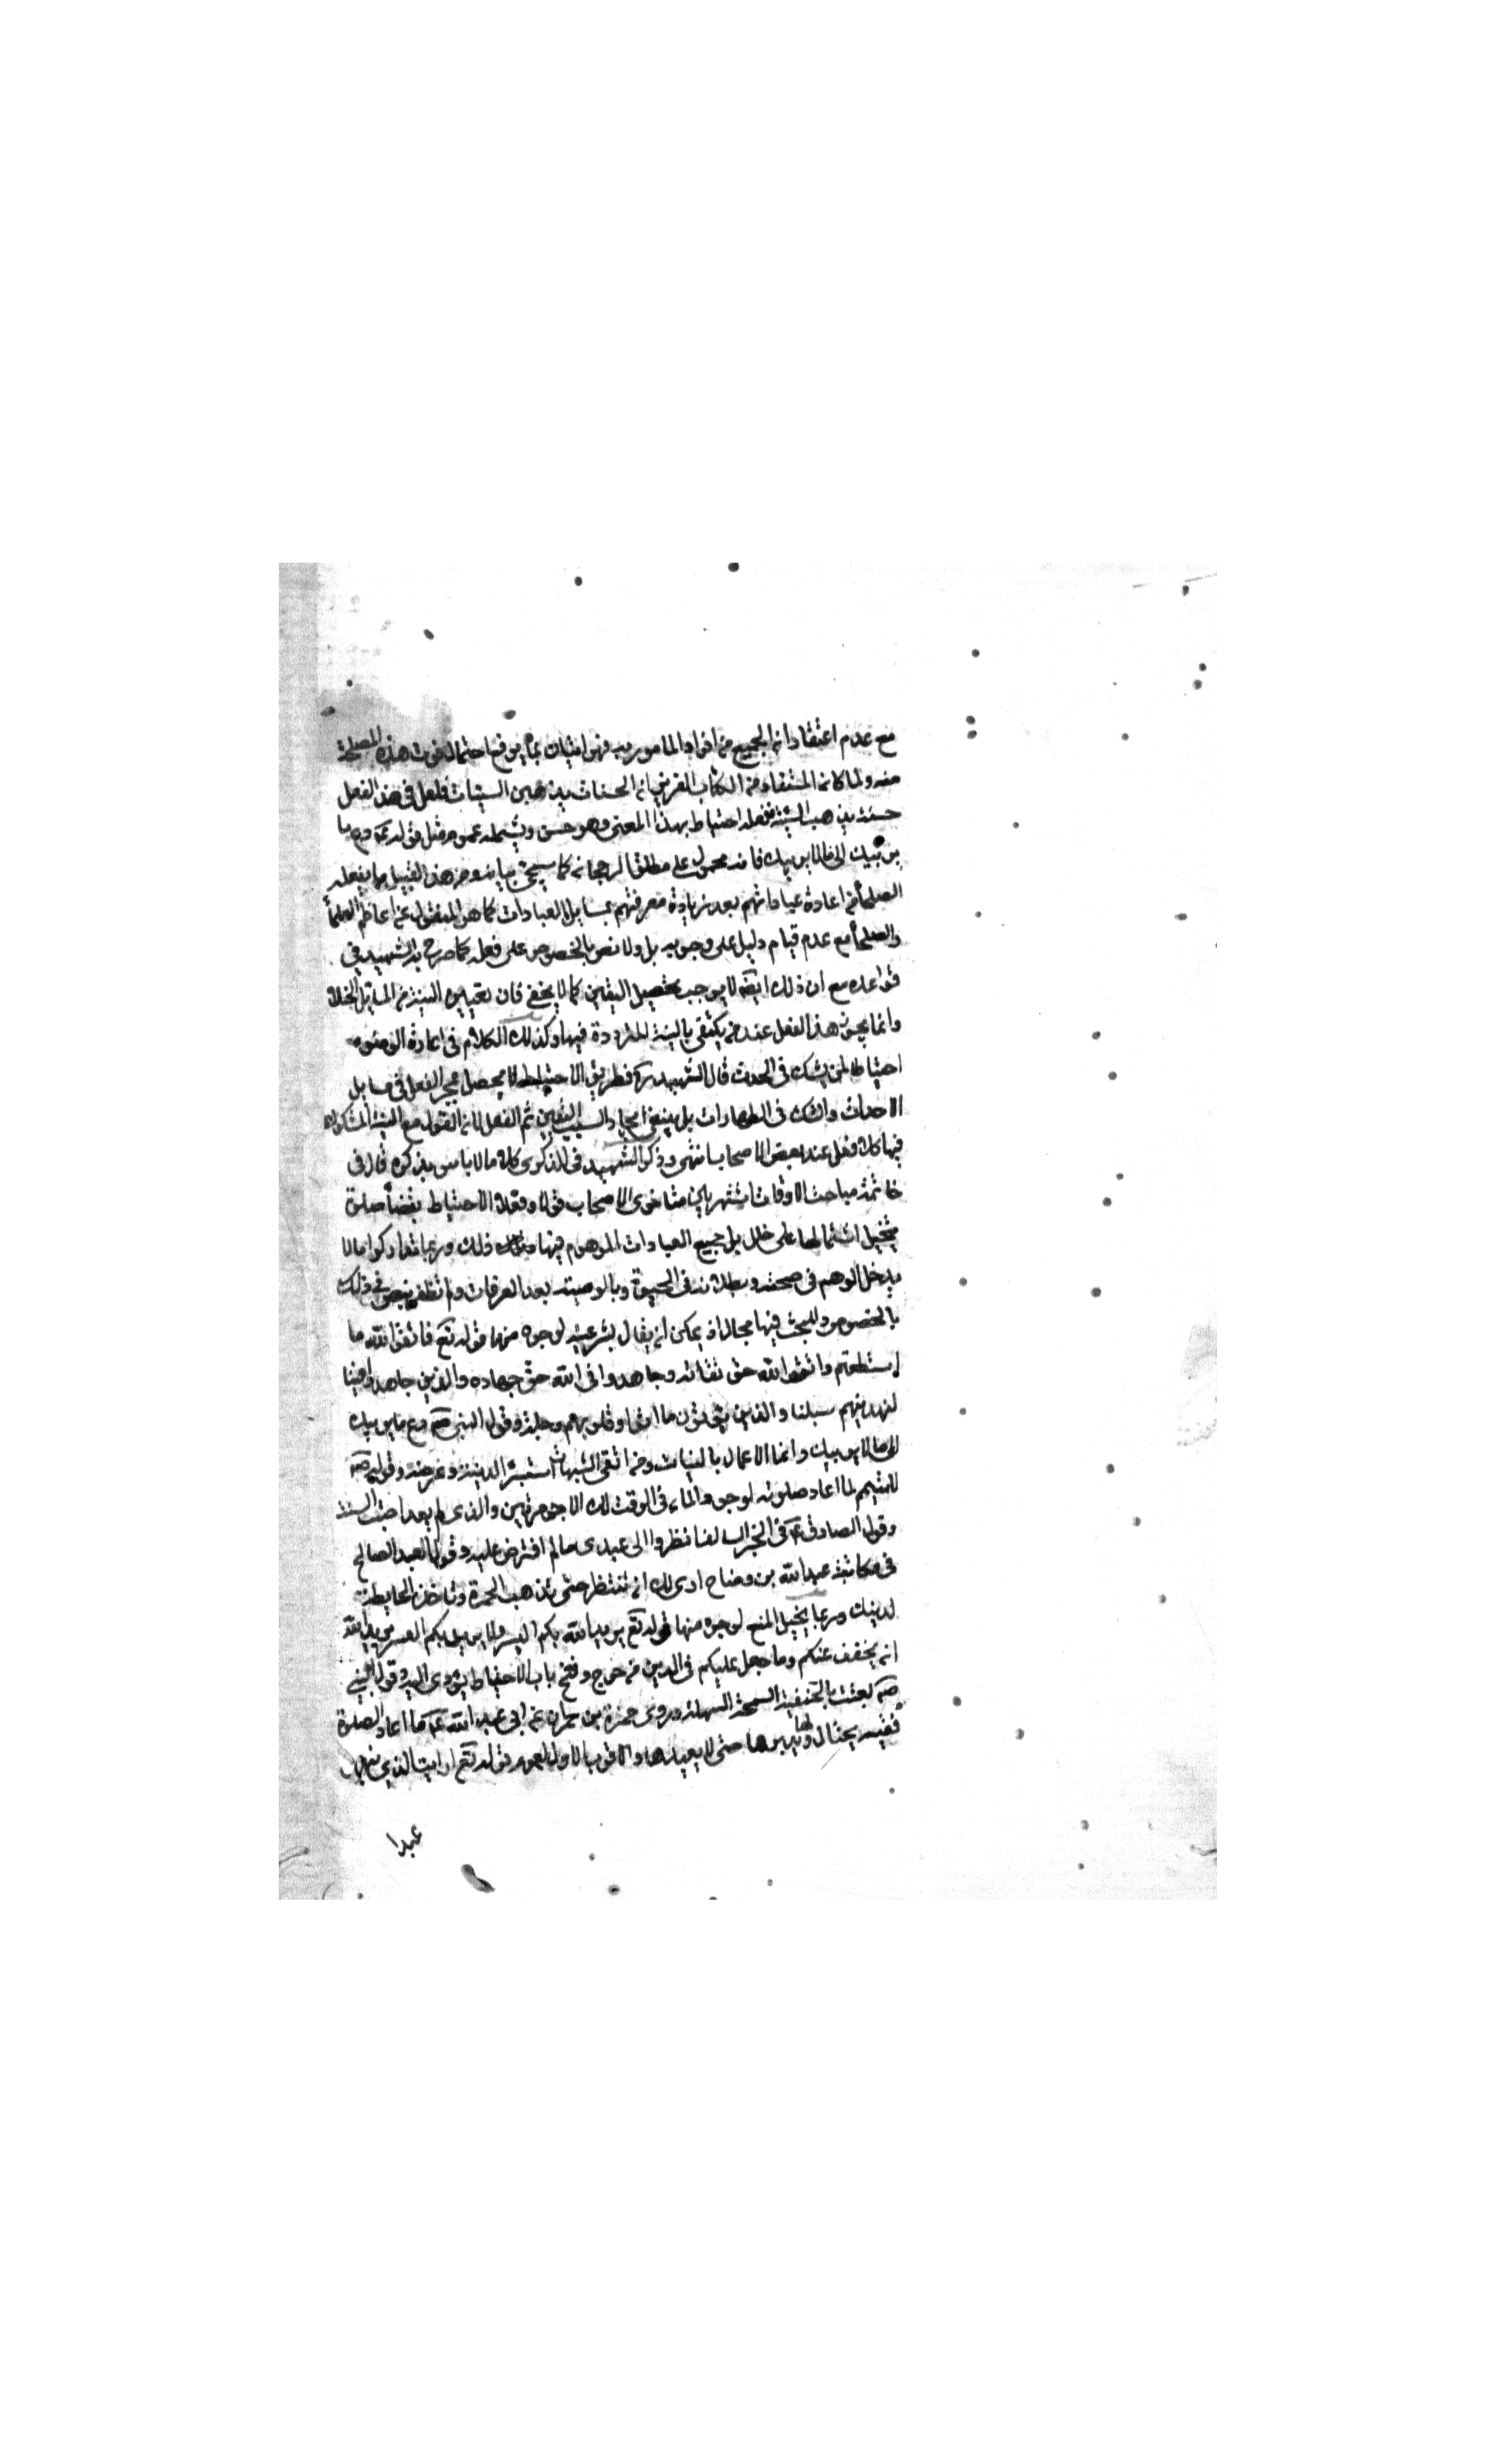 مع عدم اعتقاد ان الجميع من افراد المامور به فهو اتيان بما يرفع احتمال فوت هذه المصلحة
منه ولما كان المستفاد من الكتاب العزيز ان الحسنات يذهبن السيئات فلعل في هذا الفعل
حسنة يذهب السيئة ففعله احتياط بهذا المعنى وهو حسن ويشمله عموم مثل قوله ع دع ما
يريبك الى ما لا يريبك فانه محمول على مطلق الرجحان كما سيجئ بيانه ومن هذا القبيل ما يفعله
الصلحأ من اعادة عباداتهم بعد زيادة معرفتهم بمسايل العبادات كما هو المنقول عن اعاظم العلمأ
والصلحأ مع عدم قيام دليل على وجوبه بل ولا نص بالخصوص على فعله كما صرح به الشهيد في
قواعده مع ان ذلك ايضا لا يوجب تحصيل اليقين كما لا يخفى فان تعيين النية من المسائل الخلا
وانما يحسن هذا الفعل عند من يكتفي بالنية المرددة فيها وكذلك الكلام في اعادة الوضوء
احتياطا لمن يشك في الحدث قال الشهيد ره فطريق الاحتياط لا يحصل بمجرد الفعل في مسايل
الاحداث والشك في الطهارات بل ينبغي ايجاد السبب اليقين ثم الفعل لان القول مع النية المشكوك
فيها كلا فعل عند بعض الاصحاب انتهى وذكر الشهيد في الذكرى كلاما لا باس بذكره قال في
خاتمة مباحث الاوقات اشتهر بين متاخرى الاصحاب قولا وفعلا الاحتياط بقضأ صلوة
يتخيل اشتمالها على خلل بل جميع العبادات الموهوم فيها ذلك وربما تداركوا ما لا
يدخل الوهم في صحته وبطلانه في الحيوة وبالوصية بعد الوفات ولم نظفر بنص في ذلك
بالخصوص وللبحث فيها مجال اذ يمكن ان يقال بشرعيته لوجوه منها قوله تع فاتقوا الله ما
استطعتم واتقوا الله حق تقاته وجاهدوا في الله حق جهاده والذين جاهدوا فينا
لنهدينهم سبلنا والذين يؤتون ما اتوا وقلوبهم وجلة وقول النبي ص دع ما يريبك
الى ما لا يريبك وانما الاعمال بالنيات ومن اتقى الشبهات استبرأ لدينه وعرضه وقوله ص
للمتيمم لما اعاد صلوته لوجود المأ في الوقت لك الاجر مرتين والذي لم يعد اصبت السنة
وقول الصادق ع في الخبر السالف انظروا الى عبدى ما لم افترض عليه وقول العبد الصالح
في مكاتبة عبد الله بن وضاح ارى لك ان تنتظر حتى تذهب الحمرة وتاخذ بالحايطة
لدينك وربما يخيل المنع لوجوه منها قوله تع يريد الله بكم اليسر ولا يريد بكم العسر يريد الله
ان يخفف عنكم وما جعل عليكم في الدين من حرج وفتح باب الاحتياط يؤدى اليه وقول النبي
ص بعثت بالحنفية السمحة السهلة وروى حمزة بن حمران عن ابي عبد الله ع ما اعاد الصلوة
فقيه يحتال لها ويدبرها حتى لا يعيدها والاقرب الاول لعموم قوله تع ارايت الذي ينهى
عبدا